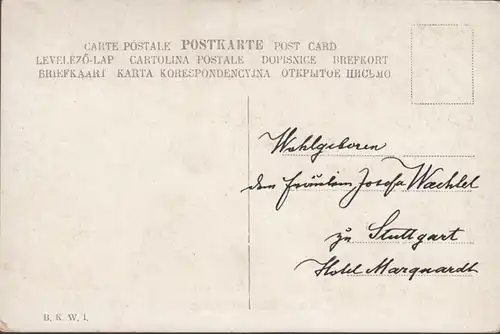 CARTE POSTALE POSTKARTE POST CARD
LEVELEZŐ-LAP CARTOLINA POSTALE DOPISNICE BREFKORT
BRIEFKAART KARTA KORESPONDENCYJNA ОТКРЫТОЕ ПИСЬМО
Wohlgeboren
dem Fräulein Josefa Wachtel
zu Stuttgart
Hotel Marquardt
B. K. W. I.